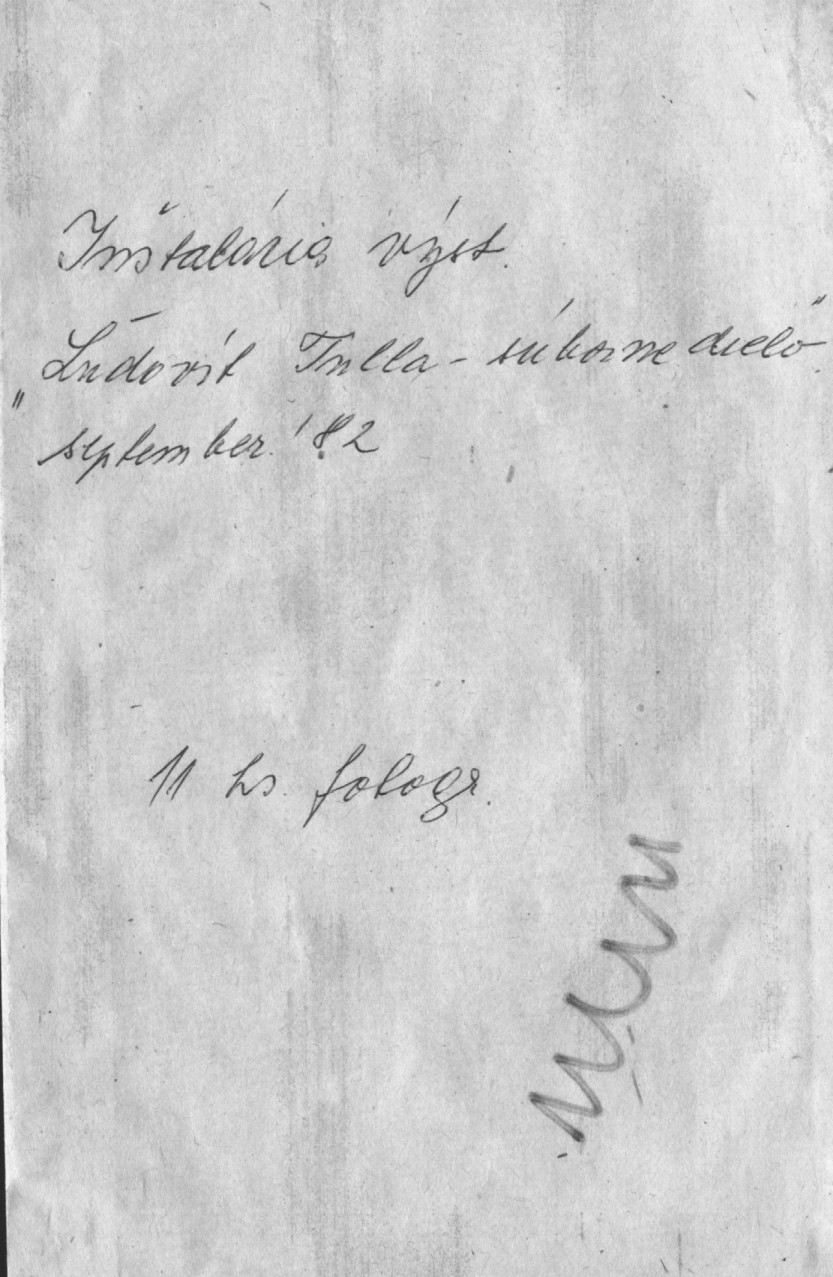 Inštalácia výst.
„Ľudovít Fulla - súborné dielo"
september '82
11 ks fotogr.